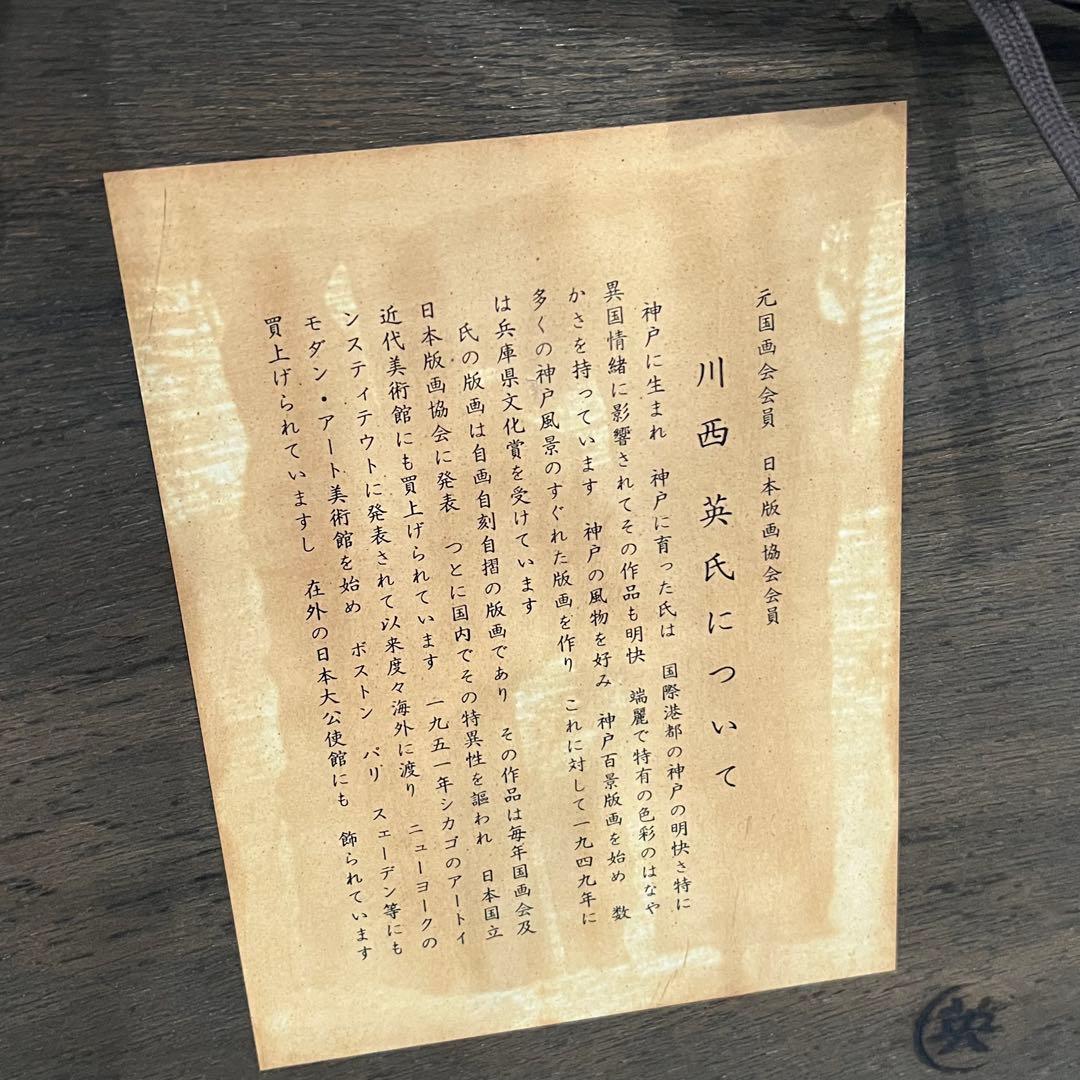 元国画会会員　日本版画協会会員
川西英氏について
神戸に生まれ　神戸に育った氏は　国際港都の神戸の明快さ特に
異国情緒に影響されてその作品も明快　端麗で特有の色彩のはなや
かさを持っています　神戸の風物を好み　神戸百景版画を始め　数
多くの神戸風景のすぐれた版画を作り　これに対して一九四九年に
は兵庫県文化賞を受けています
氏の版画は自画自刻自摺の版画であり　その作品は毎年国画会及
日本版画協会に発表　つとに国内でその特異性を謳われ　日本国立
近代美術館にも買上げられています　一九五一年シカゴのアートイ
ンスティテウトに発表されて以来度々海外に渡り　ニューヨークの
モダン・アート美術館を始め　ボストン　パリ　スェーデン等にも
買上げられていますし　在外の日本大公使館にも　飾られています
英